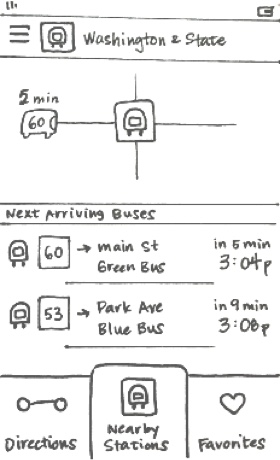 Washington & State
5 min
60
Next Arriving Buses
60 → main St in 5 min
Green Bus 3:04p
53 → Park Ave in 9 min
Blue Bus 3:08p
Directions
Nearby
Stations
Favorites